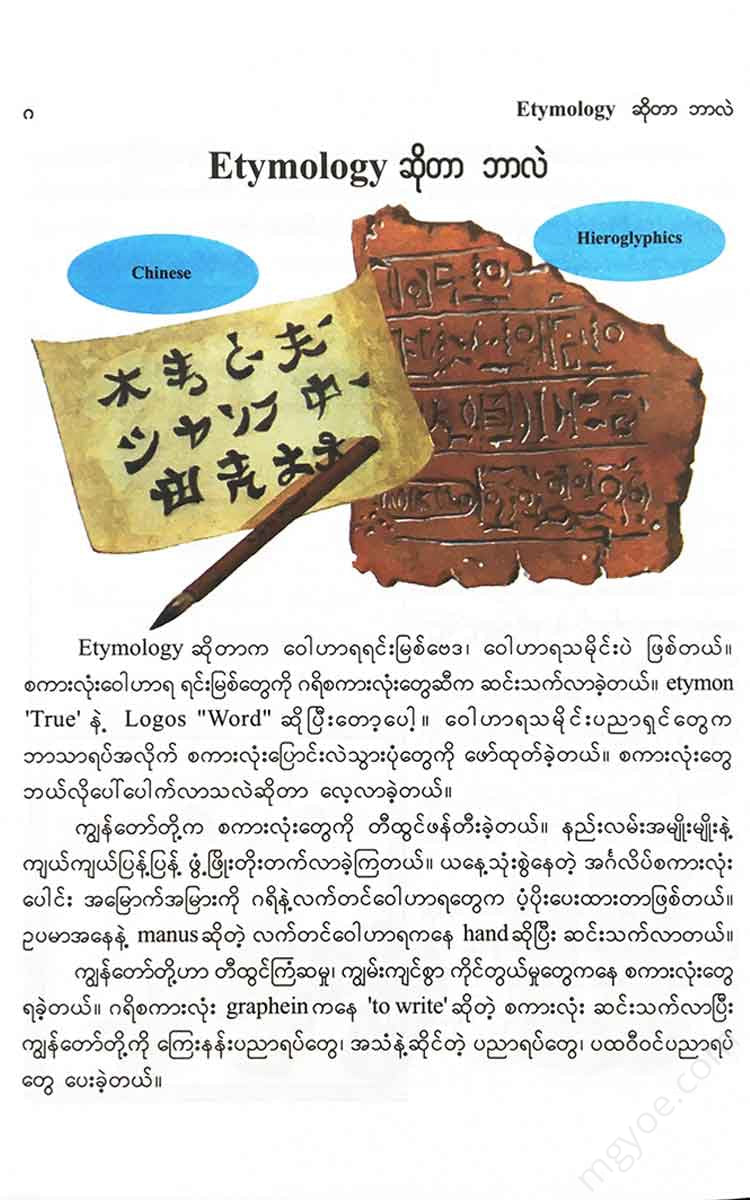 ၈
Etymology ဆိုတာ ဘာလဲ
Etymology ဆိုတာ ဘာလဲ
Chinese
Hieroglyphics
Etymology ဆိုတာက ဝေါဟာရရင်းမြစ်ဗေဒ၊ ဝေါဟာရသမိုင်းပဲ ဖြစ်တယ်။
စကားလုံးဝေါဟာရ ရင်းမြစ်တွေကို ဂရိစကားလုံးတွေဆီက ဆင်းသက်လာခဲ့တယ်။ etymon
'True' နဲ့ Logos "Word" ဆိုပြီးတော့ပေါ့။ ဝေါဟာရသမိုင်းပညာရှင်တွေက
ဘာသာရပ်အလိုက် စကားလုံးပြောင်းလဲသွားပုံတွေကို ဖော်ထုတ်ခဲ့တယ်။ စကားလုံးတွေ
ဘယ်လိုပေါ်ပေါက်လာသလဲဆိုတာ လေ့လာခဲ့တယ်။
ကျွန်တော်တို့က စကားလုံးတွေကို တီထွင်ဖန်တီးခဲ့တယ်။ နည်းလမ်းအမျိုးမျိုးနဲ့
ကျယ်ကျယ်ပြန့်ပြန့် ဖွံ့ဖြိုးတိုးတက်လာခဲ့ကြတယ်။ ယနေ့သုံးစွဲနေတဲ့ အင်္ဂလိပ်စကားလုံး
ပေါင်း အမြောက်အမြားကို ဂရိနဲ့လက်တင်ဝေါဟာရတွေက ပံ့ပိုးပေးထားတာဖြစ်တယ်။
ဥပမာအနေနဲ့ manus ဆိုတဲ့ လက်တင်ဝေါဟာရကနေ hand ဆိုပြီး ဆင်းသက်လာတယ်။
ကျွန်တော်တို့ဟာ တီထွင်ကြံဆမှု၊ ကျွမ်းကျင်စွာ ကိုင်တွယ်မှုတွေကနေ စကားလုံးတွေ
ရခဲ့တယ်။ ဂရိစကားလုံး graphein ကနေ 'to write' ဆိုတဲ့ စကားလုံး ဆင်းသက်လာပြီး
ကျွန်တော်တို့ကို ကြေးနန်းပညာရပ်တွေ၊ အသံနဲ့ဆိုင်တဲ့ ပညာရပ်တွေ၊ ပထဝီဝင်ပညာရပ်
တွေ ပေးခဲ့တယ်။
mgyoe.com